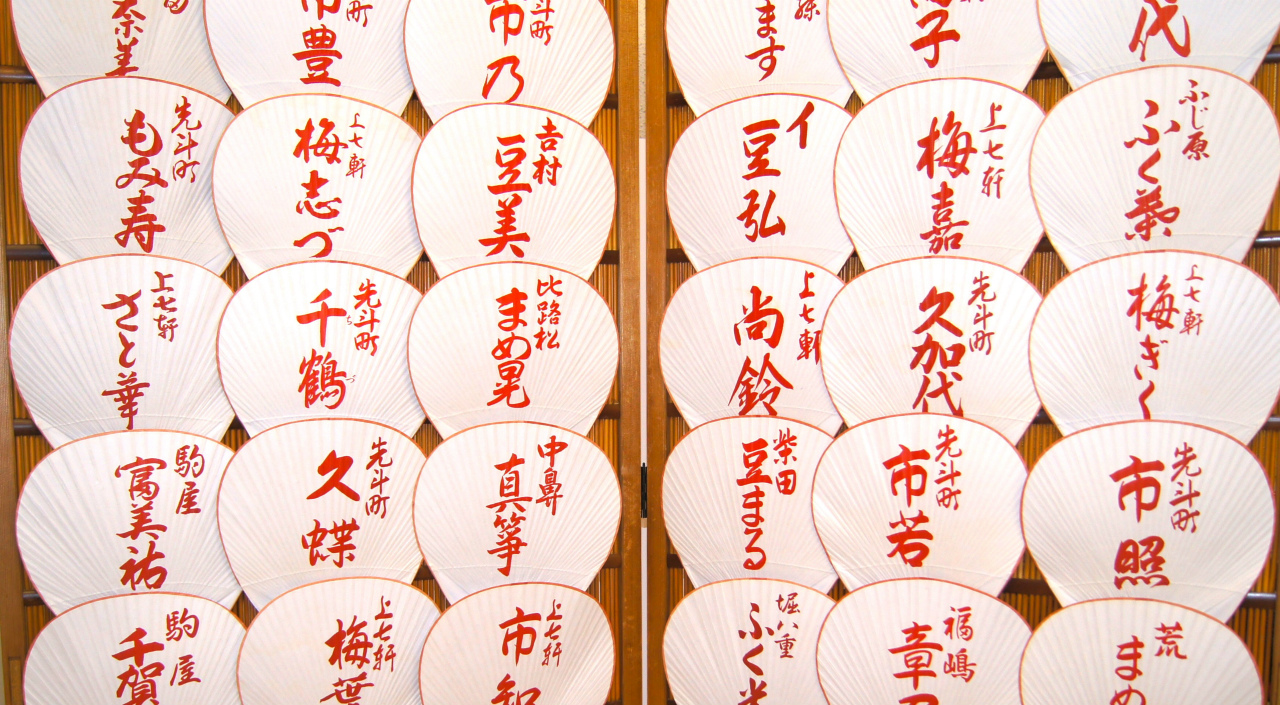 奈美
市豊
町
市乃
斗町
ます
子
代
先斗町
もみ寿
上七軒
梅志づ
吉村
豆美
イ
豆弘
上七軒
梅嘉
ふじ原
ふく菊
上七軒
さと華
先斗町
千鶴
ちづ
比路松
まめ晃
上七軒
尚鈴
先斗町
久加代
上七軒
梅ぎく
駒屋
富美祐
先斗町
久蝶
中鼻
真箏
柴田
豆まる
先斗町
市若
先斗町
市照
駒屋
千賀
上七軒
梅葉
上七軒
市知
堀八重
ふく
福嶋
章
荒
まめ